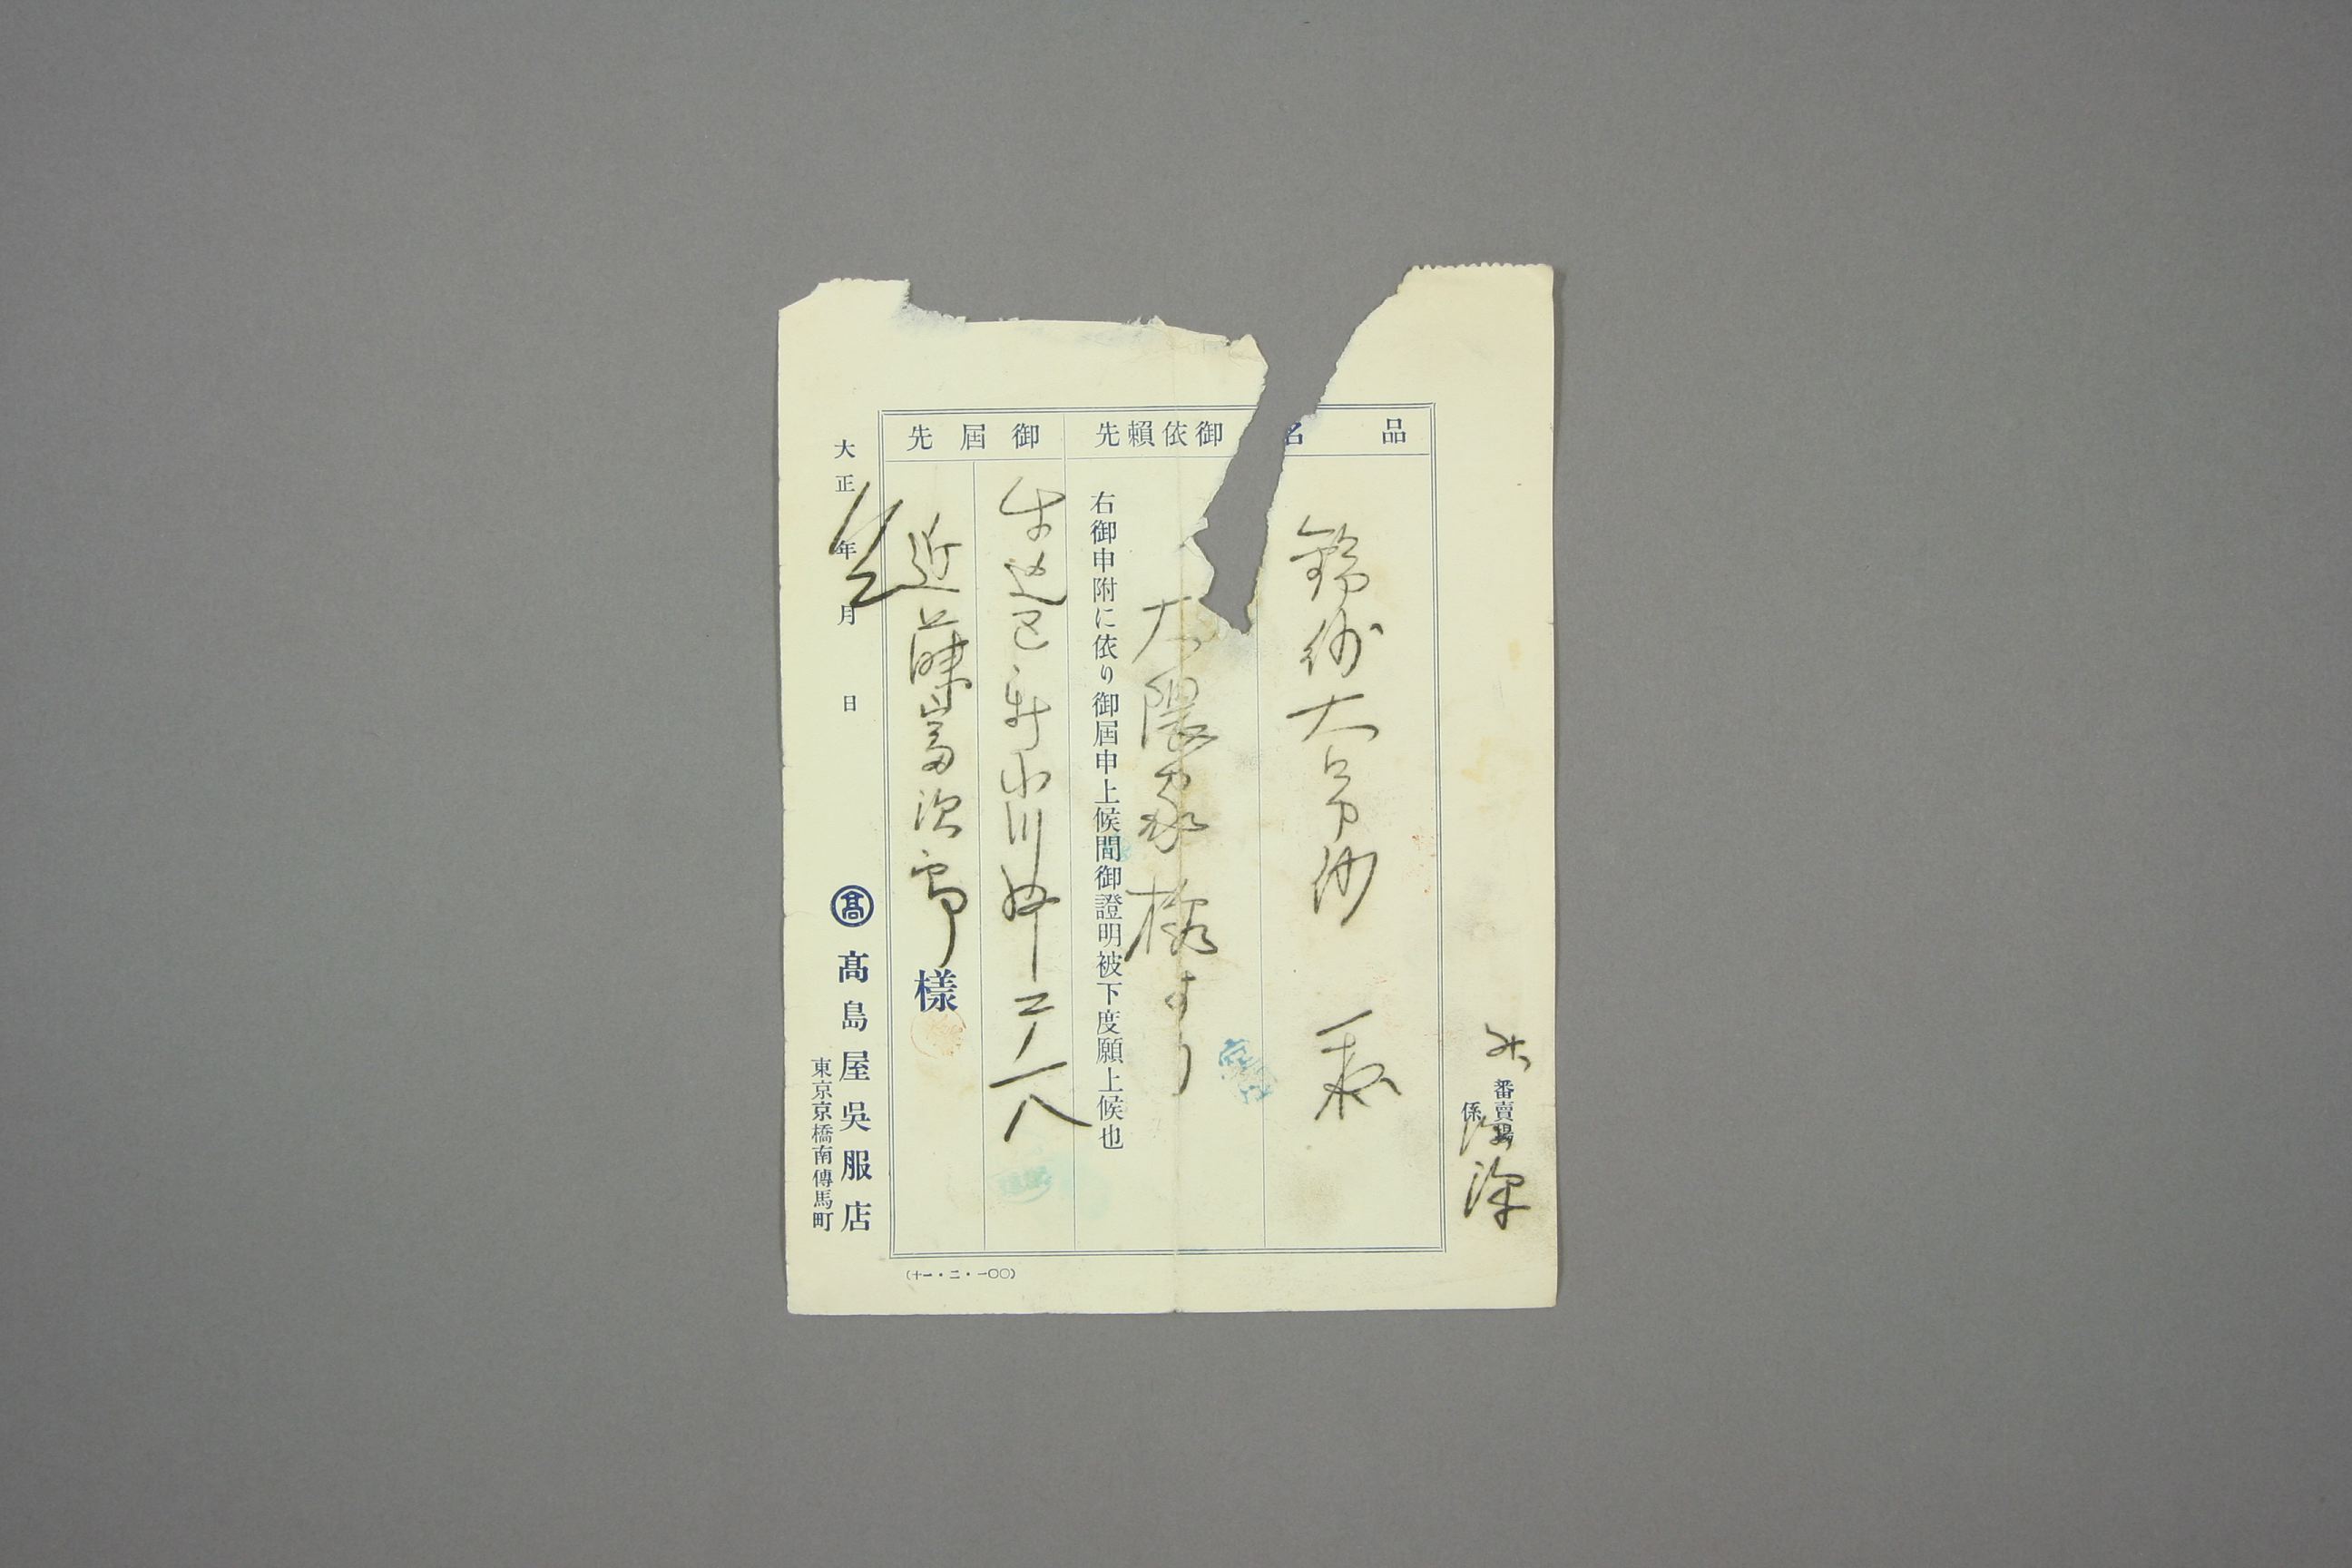 番賣場
係
品名
錦紗大帛紗 一枚
御依賴先
大隈家様より
右御申附に依り御屆申上候間御證明被下度願上候也
御屆先
牛込区新小川町二ノ一八
近藤富次郎様
大正 年 月 日
髙
髙島屋吳服店
東京京橋南傳馬町
(十一・二・一〇〇)